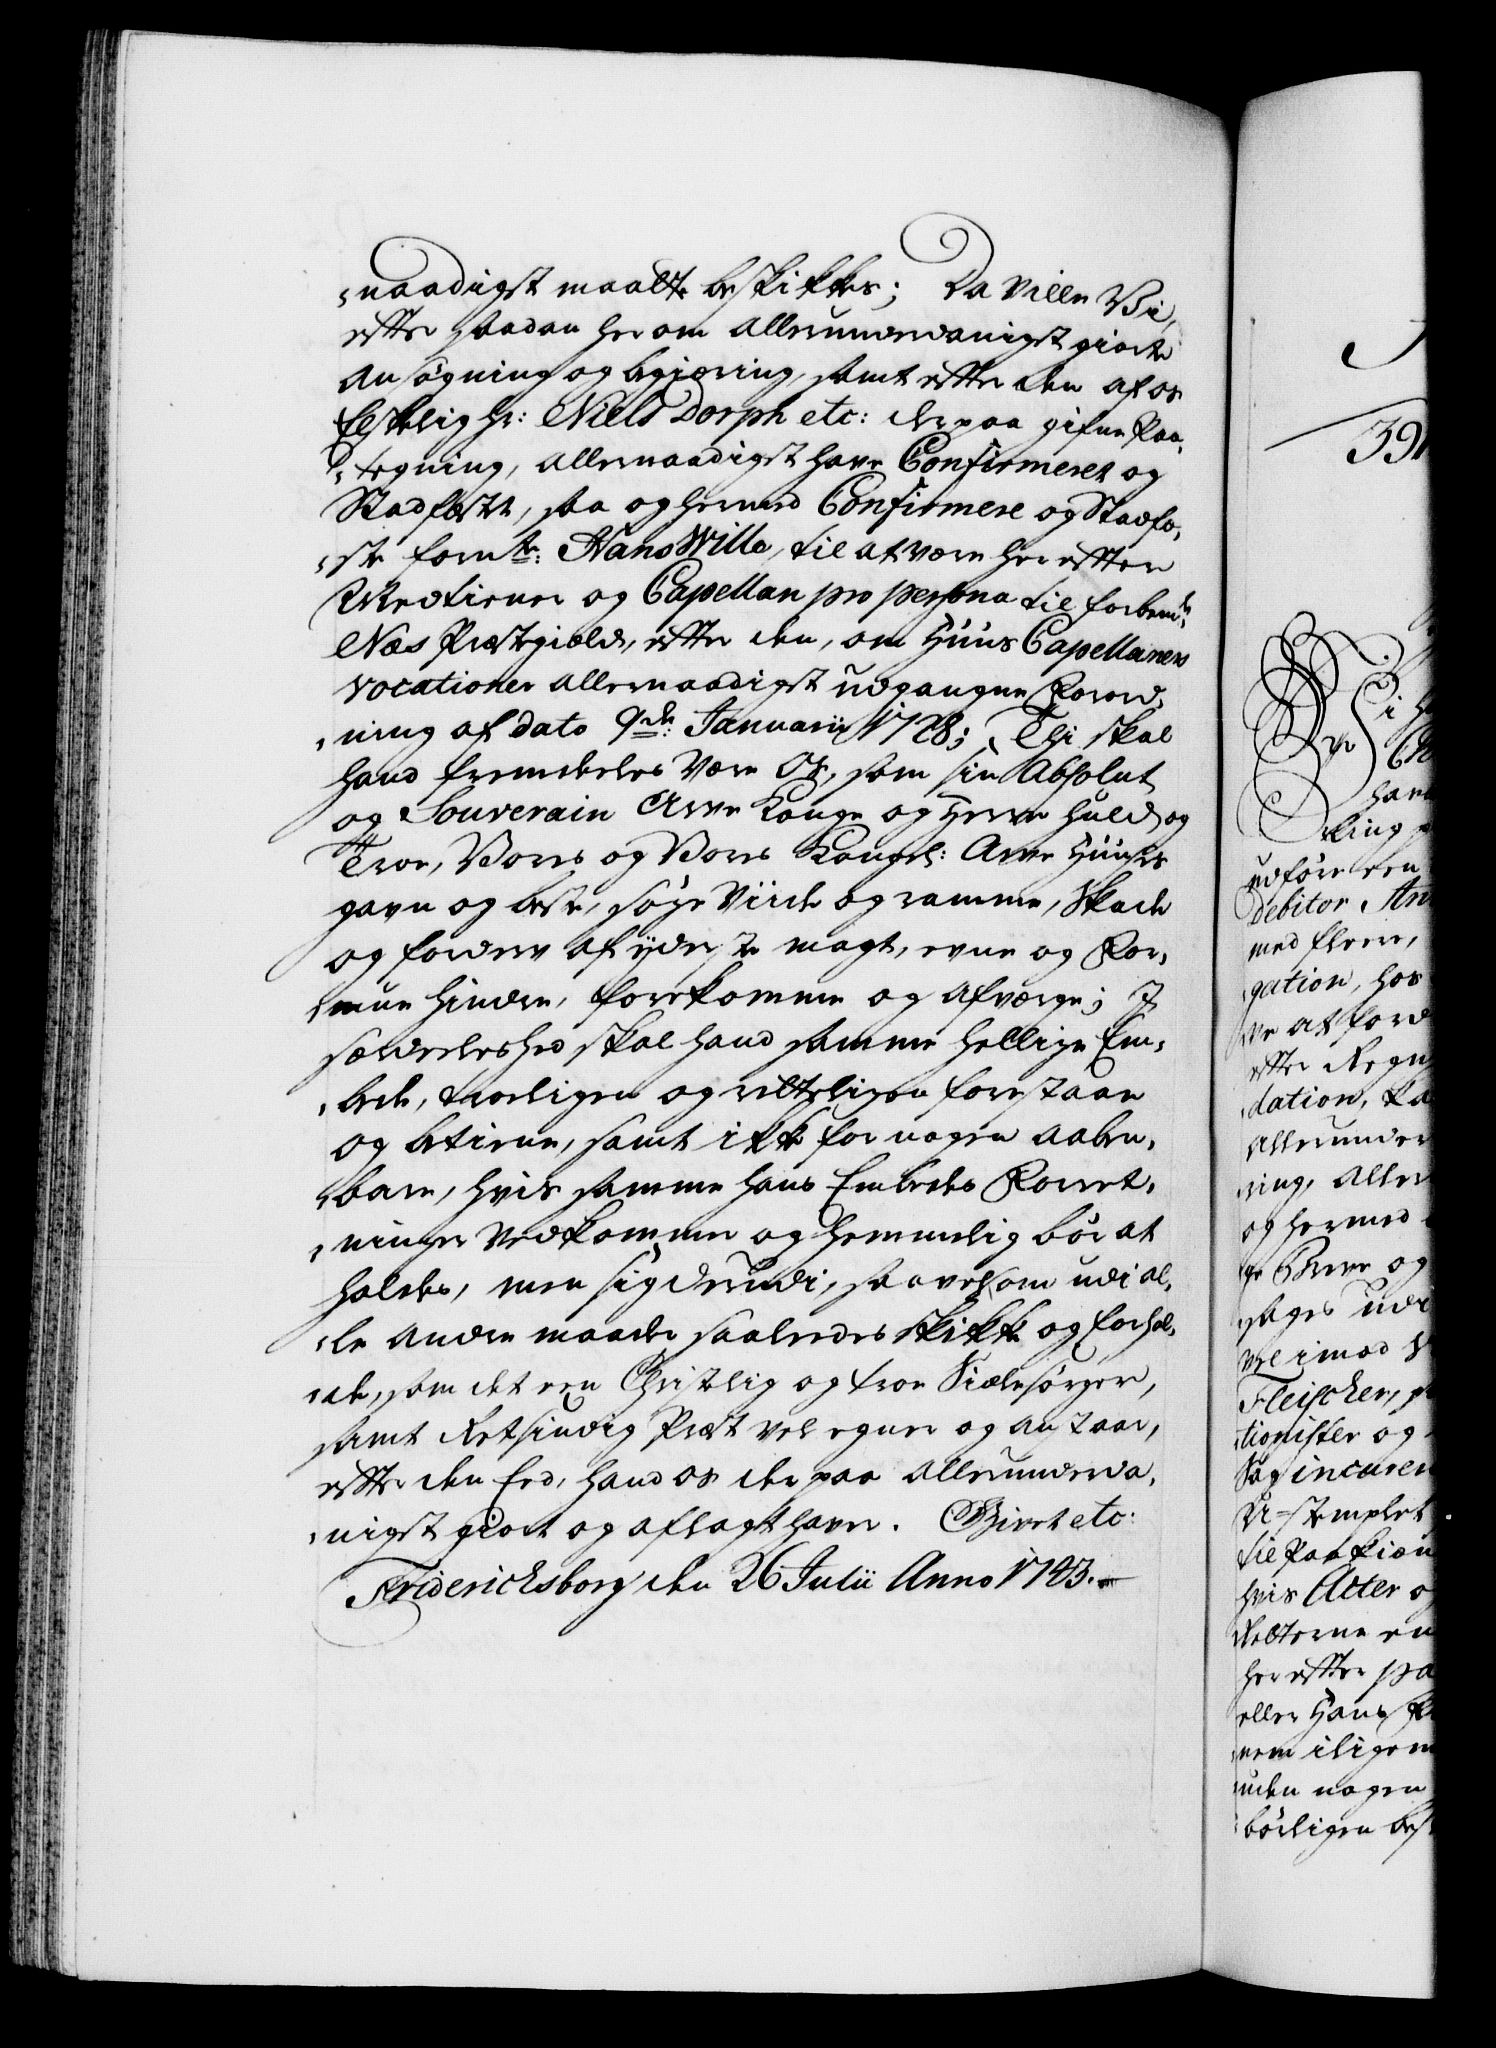 naadigst maatte beskikkes; Da ville Vi,
efter saadan her om allerunderdanigst giorte
ansøgning og begiæring, samt efter den af os
Elskelig Hr: Niels Dorph etc: der paa gifne Paa-
-tegning, allernaadigst have Confirmeret og
Stadfæstet, saa og hermed Confirmere og Stadfæ-
-ste fornte: Hans Wille, til at være her efter
Medtiener og Capellan pro persona til forbemte:
Næs Præstegield, efter den, om Huus Capellaners
vocationer allernaadigst udgangne Forord-
-ning af dato 9de: Januarii 1728; Thi skal
hand fremdeles være Os, som sin Absolut
og Souverain Arve Konge og Herre huld og
Troe, Vores og Vores Kongel: Arve Huuses
gavn og beste, søge viide og ramme, Skade
og forderv af yderste magt, evne og For-
-mue hindre, forekomme og afværge; I
særdeeleshed skal hand samme hellige Em-
-bede, troeligen og retteligen forestaae
og betiene, samt ikke for nogen aaben-
-bare, hvis samme hans Embedes Forret-
-ninger vedkommer og hemmelig bør at
holdes, men sig derudi, saavelsom udi al-
-le andre maader saaledes skikke og forhol-
-de, som det een Christelig og troe Siælesørger,
samt Retsindig Præst vel egner og anstaar,
efter den Eed, hand os der paa allerunderda-
-nigst giort og aflagt haver. Givet etc:
Friderichsborg den 26 Julii Anno 1743.
391
udføre een
debitor An
med fleere,
gation, hos
ve at ford
efter Regn
dation, ka
allerunder
ring, aller
og hermed
ge Breve og
sages udi
vel imod V
Fleischer, p
tionister og
Sag incaren
U-stemplet
til Paakien
hvis Acter o
Retterne en
her efter pa
eller Hans
nem iligem
uden nogen
børligen bes